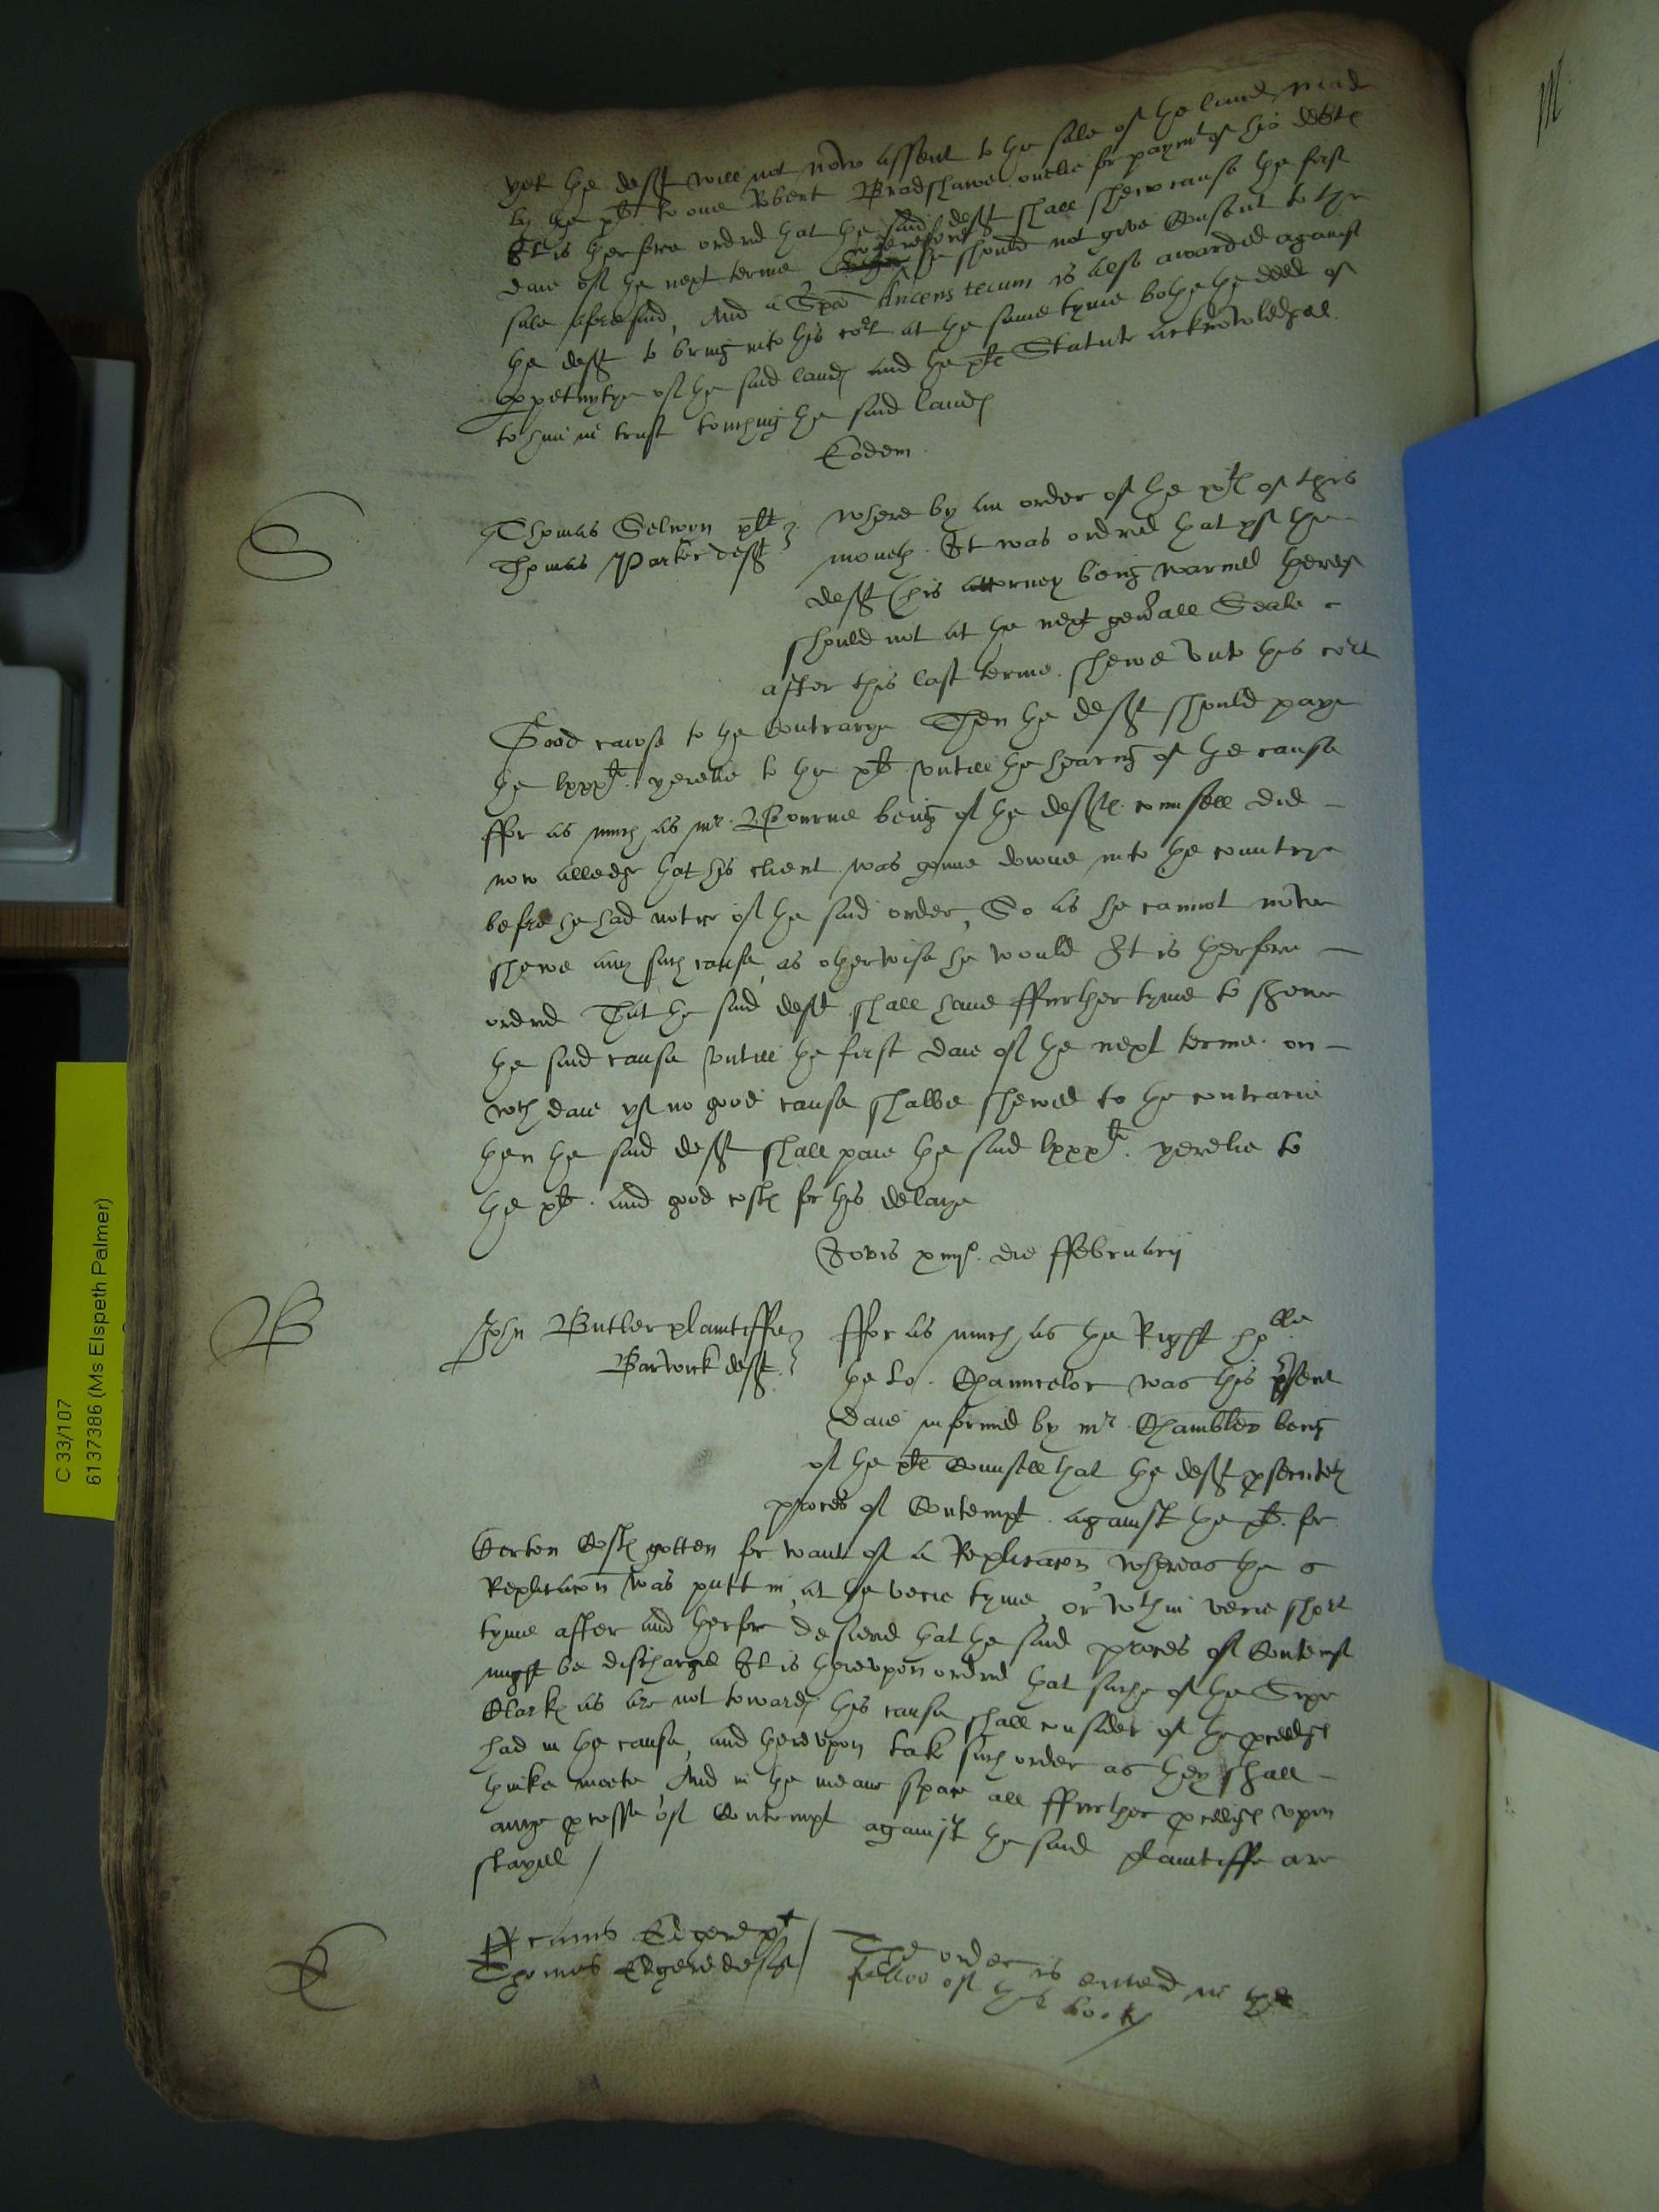 yet the deft will not now assent to the sale of the land made
by the plt to one Robert Bradshawe onelie for paymt of his debte
It is therfore ordred that the said deft shall shew cause the first
daie of the next terme wherefore he should not give Consent to the
sale aforesaid, And a Spa ducens tecum is also awarded against
the deft to bring into this cort at the same tyme bothe the deed of
ppetuytye of the said landes and the plte Statute acknowledged
to him in trust touching the said landes
Eodem
S
Thomas Selwyn plt
Thomas Parker deft
Where by an order of the of this
moneth. It was ordred that yf the
deft (his attorney being warned therof
should not at the next genall Seale
after this last terme. shewe unto this cort
Good cawse to the contrarye Then the deft should paye
the lxxxli. yerelie to the plt untill the hearing of the cause
ffor as much as mr. Bourne being of the defte counsell did
now alledge that his client was gonne downe into the countrye
before he had notice of the said order, So as he cannot nowe
shewe any such cause, as otherwise he would It is therfore
ordred That the said deft shall have ffurther tyme to shewe
the said cause untill the first daie of the next terme. on
wch daie yf no good cause shalbe shewed to the contrarie
then the said deft shall paie the said lxxxli. yerelie to
the plt. and good costes for his delaye
Jovis die ffebruarij
B
John Butler plaintiffe
Barwick deft
ffor as much as the Right ho:ble
the Lo. Chauncelor was this psent
daie informed by mr. Chambler being
of the plte Counsell that the deft psecuteth
proces of Contempt. against the plt. for
Certen Costes gotten for want of a Replicacon, whereas the
Replicacon was putt in, at the verie tyme, or wthin verie short
tyme after and therfore desired that the said proces of Contempt
might be discharged It is therevpon ordred that suche of the Sixe
Clarkes as are not towardes this cause shall consider of the pcedinges
had in the cause, and therevpon take such order as they shall
thinke meete, And in the meane space all ffurther pcedinges vpon
anye processe of Contempt against the said plaintiffe are
stayed /
E
ffrauncis Edgere plt
Thomas Edgere deft
The order is entered in the
follow of this booke
C 33/107
6137386 (Ms Elspeth Palmer)